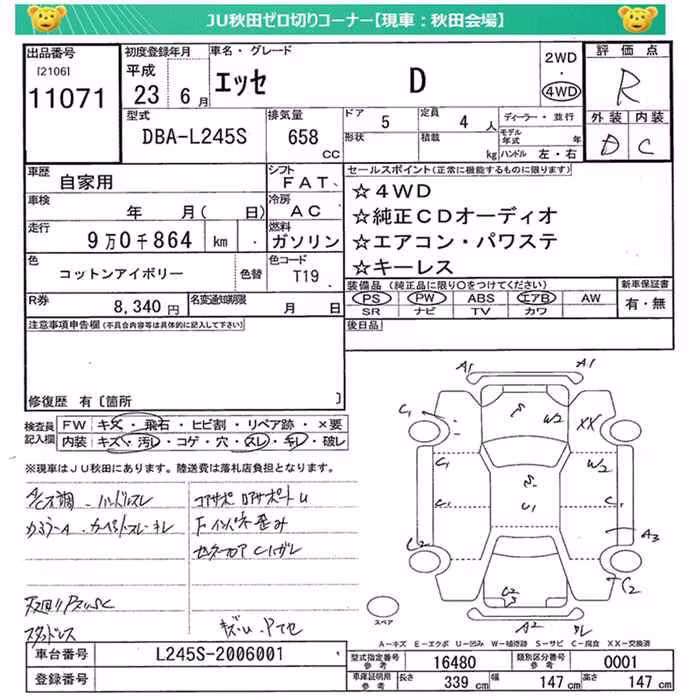 JU秋田ゼロ切りコーナー【現車:秋田会場】
出品番号 初度登録年月 車名・グレード 2WD・4WD 評価点
[2106] 平成 エッセ D R
11071 23 6月
型式 排気量 ドア 5 定員 4人 ディーラー・並行 外装 内装
DBA-L245S 658 CC 形状 積載 kg モデル年式 年 D C
ハンドル 左・右
車歴 自家用 シフト FAT セールスポイント(正常に機能するものに限ります)
車検 年 月( 日) 冷房 AC ☆4WD
走行 9万0千864 km 燃料 ガソリン ☆純正CDオーディオ
☆エアコン・パワステ
色 コットンアイボリー 色替 色コード T19 ☆キーレス
R券 8,340円 名変通知期限 月 日 装備品(純正品に限り○をつけてください) 新車保証書
PS PW ABS エアB AW 有・無
SR ナビ TV カワ
注意事項申告欄(不具合内容等は具体的に記入して下さい) 後日品
修復歴 有〔箇所 〕
検査員記入欄 FW キズ・飛石・ヒビ割・リペア跡・×要
内装 キズ・汚レ・コゲ・穴・スレ・キレ・破レ
※現車はJU秋田にあります。陸送費は落札店負担となります。
A/C不調・ハンドルスレ コアサポ ロアサポートU
カペットスレ・キレ Fインパネ歪み
スタッドレス
A1 A1
C1 S W2 XX
C1 W2
S
C1 U1 C1
A3
C2 C2 S C2
A2
スペア
A-キズ E-エクボ U-凹み W-補修跡 S-サビ C-腐食 XX-交換済
車台番号 L245S-2006001 型式指定番号 参考 16480 類別区分番号 参考 0001
登録番号 車庫証明用 参考 長さ 339cm 幅 147cm 高さ 147cm